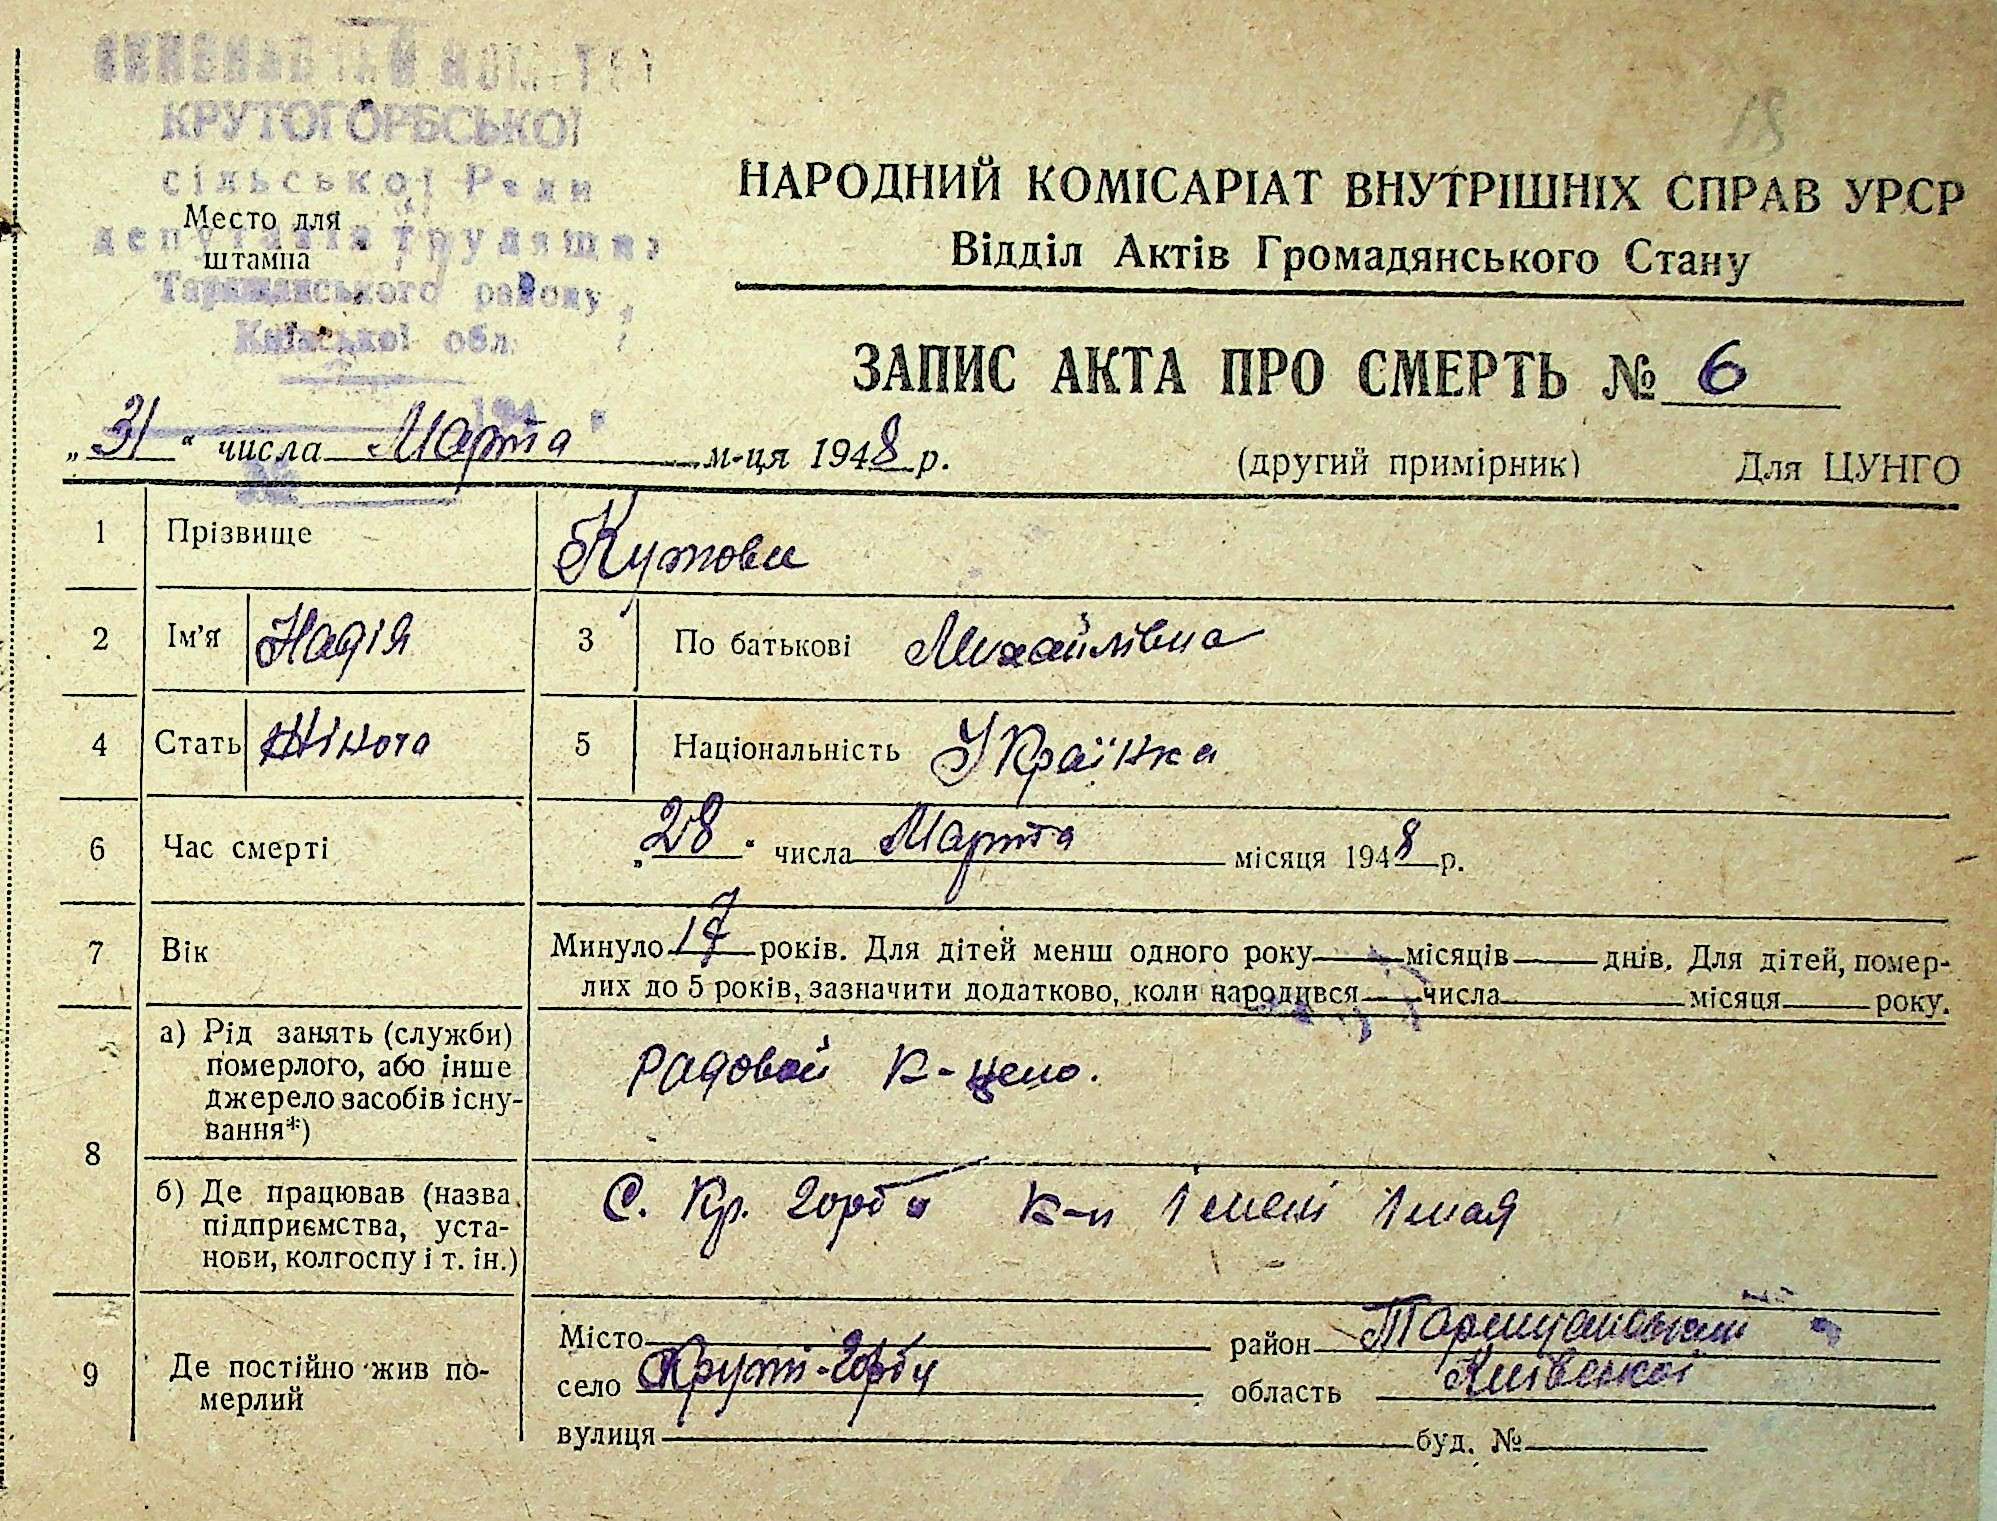 КРУТОГОРБСЬКОЇ
сільської Ради
депутатів трудящих
Таращанського району
Київської обл.
Место для
штампа
18
НАРОДНИЙ КОМІСАРІАТ ВНУТРІШНІХ СПРАВ УРСР
Відділ Актів Громадянського Стану
ЗАПИС АКТА ПРО СМЕРТЬ № 6
„31“ числа Марта м-ця 1948 р.
(другий примірник) Для ЦУНГО
1 Прізвище Кутова
2 Ім'я Надія 3 По батькові Михайлівна
4 Стать Жіноча 5 Національність Українка
6 Час смерті „28“ числа Марта місяця 1948 р.
7 Вік Минуло 17 років. Для дітей менш одного року місяців днів. Для дітей, помер-
лих до 5 років, зазначити додатково, коли народився числа місяця року.
8 а) Рід занять (служби)
померлого, або інше
джерело засобів існу-
вання*)
радовой к-
б) Де працював (назва
підприємства, уста-
нови, колгоспу і т. ін.)
С. Кр. Горба к-п імені 1 мая
9 Де постійно жив по-
мерлий
Місто район Таращанський
село Круті-Горби область Київської
вулиця буд. №